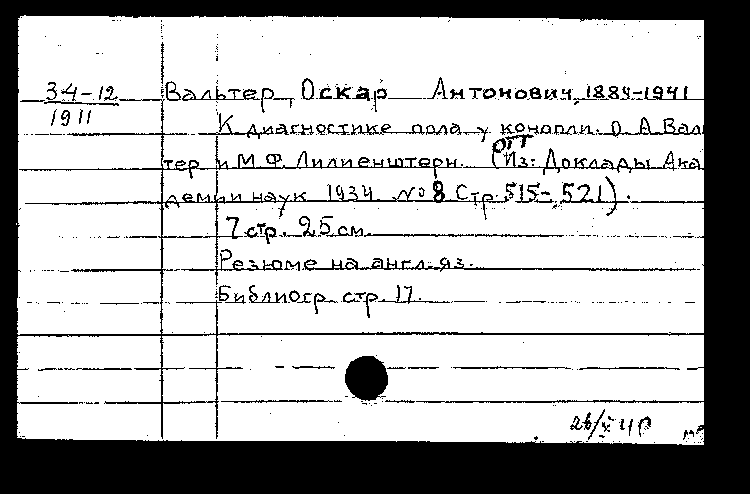 34-12
1911
Вальтер, Оскар Антонович, 1889-1941
К диагностике пола у конопли. О. А. Валь
тер и М. Ф. Лилиенштерн. (Отт. Из: Доклады Ака
демии наук 1934 № 8 Стр. 515-521).
7 стр. 25 см.
Резюме на англ. яз.
Библиогр. стр. 17.
26/X 40